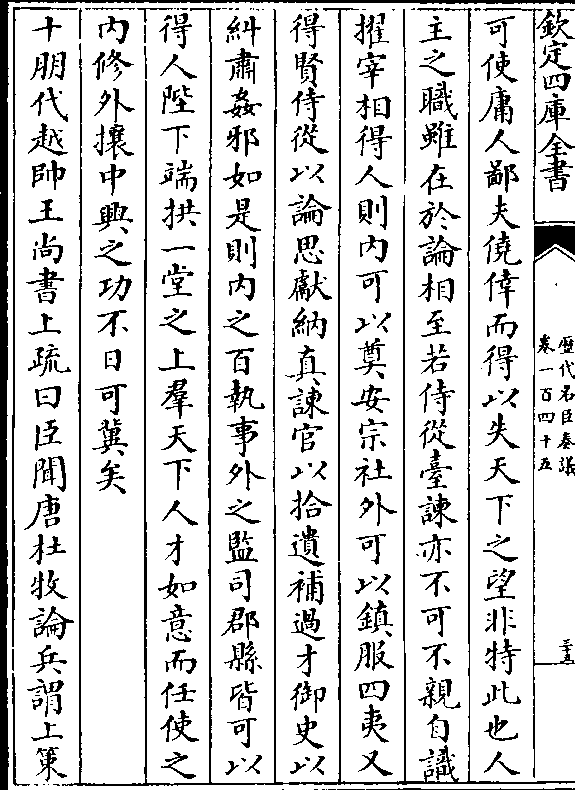 欽定四庫全書
歷代名臣奏議
卷一百四十五
三十五
可使庸人鄙夫僥倖而得以失天下之望非特此也人
主之職雖在於論相至若侍從臺諫亦不可不親自識
擢宰相得人則内可以奠安宗社外可以鎮服四夷又
得賢侍從以論思獻納真諫官以拾遺補過才御史以
糾肅姦邪如是則内之百執事外之監司郡縣皆可以
得人陛下端拱一堂之上羣天下人才如意而任使之
内修外攘中興之功不日可冀矣
十朋代越帥王尚書上疏曰臣聞唐杜牧論兵謂上策